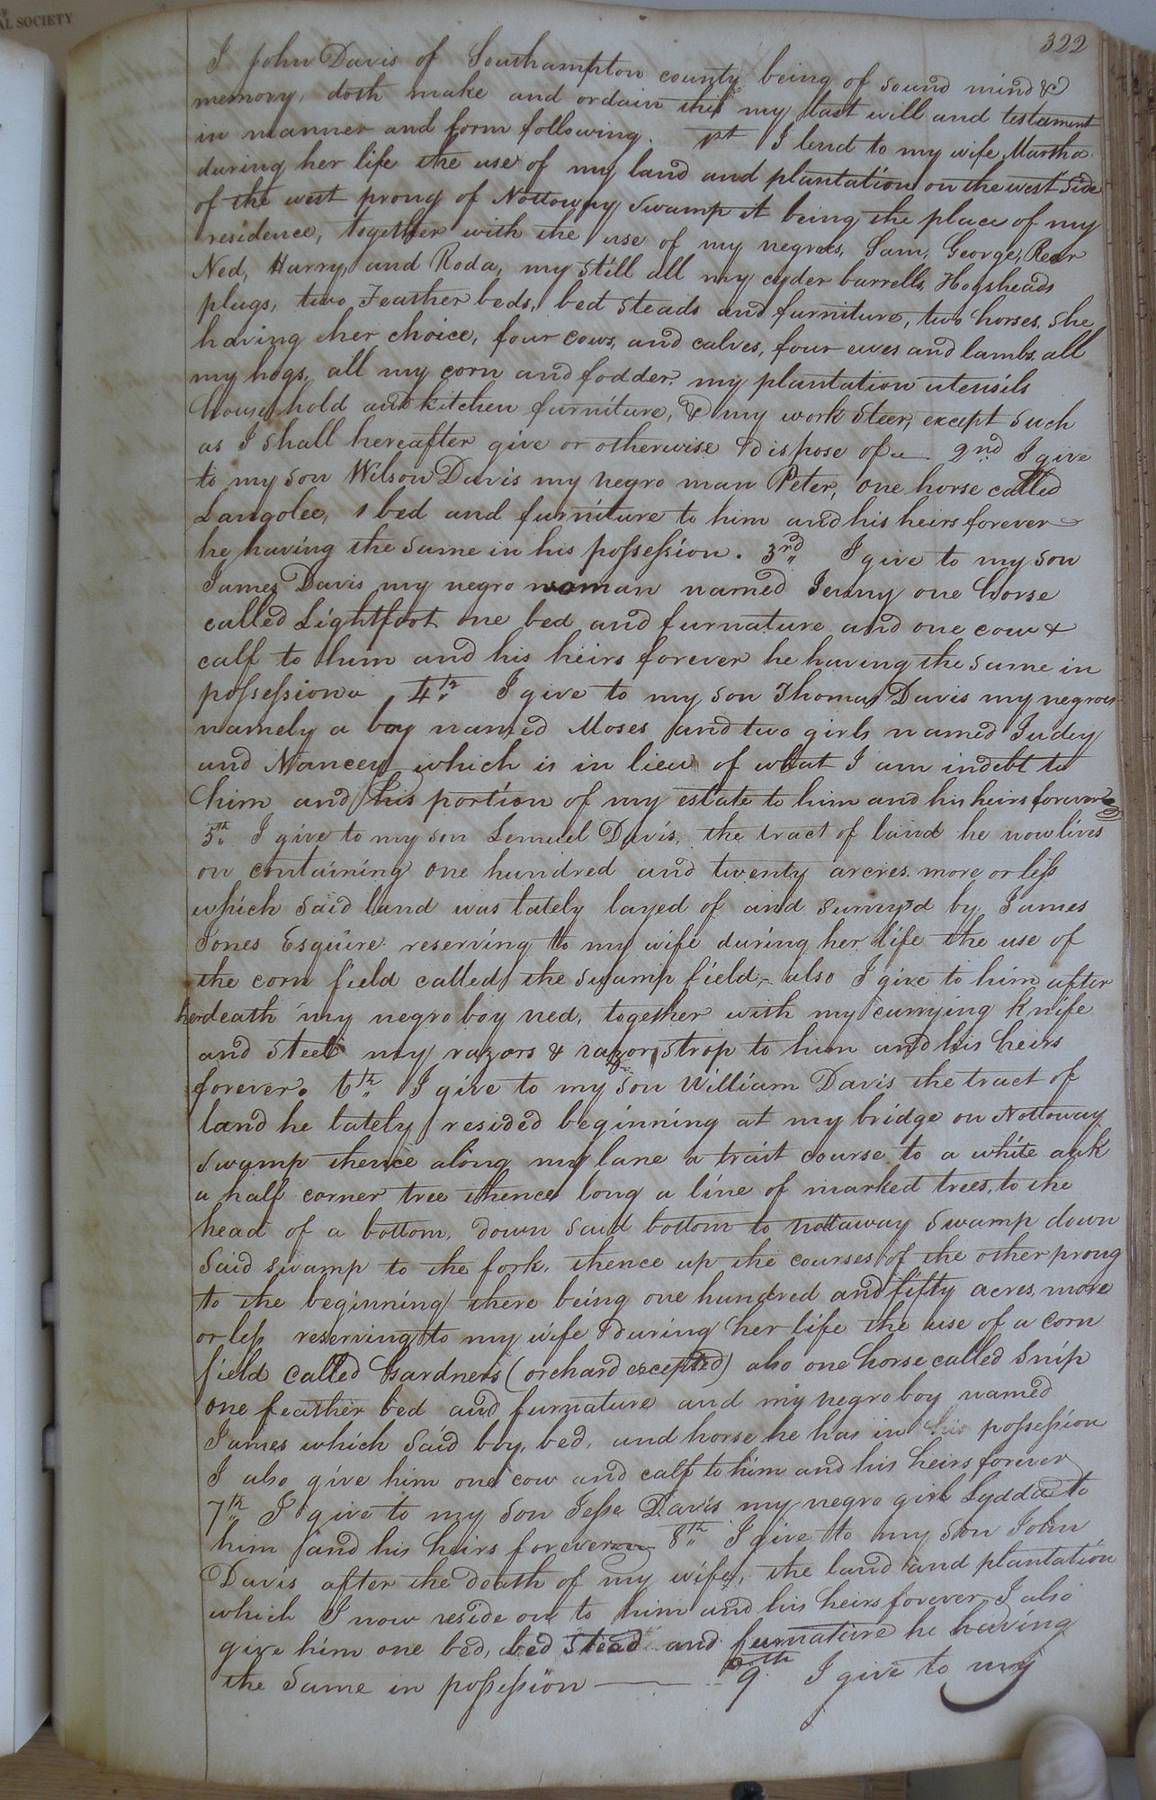 AL SOCIETY
322
I John Davis of Southampton county being of sound mind &
memory, doth make and ordain this my last will and testament
in manner and form following. 1st I lend to my wife Martha
during her life the use of my land and plantation on the west side
of the west prong of Nottoway swamp it being the place of my
residence, together with the use of my negroes, Sam, George,
Ned, Harry, and Roda, my still all my cyder barrells, Hogsheads
plugs, two Feather beds, bed steads and furniture, two horses, she
having her choice, four cows, and calves, four ewes and lambs, all
my hogs, all my corn and fodder. my plantation utensils
household and kitchen furniture, & my work steer, except such
as I shall hereafter give or otherwise dispose of 2nd I give
to my son Wilson Davis my negro man Peter, one horse called
Langolee, 1 bed and furniture to him and his heirs forever
he having the same in his possession. 3rd I give to my son
James Davis my negro woman named Jenny one horse
called Lightfoot one bed and furnature and one cow &
calf to him and his heirs forever he having the same in
possession 4th I give to my son Thomas Davis my negroes
namely a boy named Moses and two girls named Judey
and Nancey which is in lieu of what I am indebt to
him and his portion of my estate to him and his heirs forever
5th I give to my son Lemuel Davis, the tract of land he now lives
on containing one hundred and twenty arcres more or less
which said land was lately layed of and survey'd by James
Jones Esquire reserving to my wife during her life the use of
the corn field called the swamp field, also I give to him after
her death my negro boy ned, together with my currying knife
and steel my razors & razor strop to him and his heirs
forever. 6th I give to my son William Davis the tract of
land he lately resided beginning at my bridge on Nottoway
swamp thence along my lane a trait course to a white oak
a half corner tree thence long a line of marked trees, to the
head of a bottom, down said bottom to nottaway swamp down
said swamp to the fork, thence up the courses of the other prong
to the beginning there being one hundred and fifty acres, more
or less reserving to my wife during her life the use of a corn
field called Gardners (orchard excepted) also one horse called Snip
one feather bed and furnature and my negro boy named
James which said boy, bed, and horse he has in his possession
I also give him one cow and calf to him and his heirs forever
7th I give to my son Jesse Davis my negro girl Lydda to
him and his heirs forever 8th I give to my son John
Davis after the death of my wife, the land and plantation
which I now reside on to him and his heirs forever I also
give him one bed, bed stead and furnature he having
the same in possession 9th I give to my